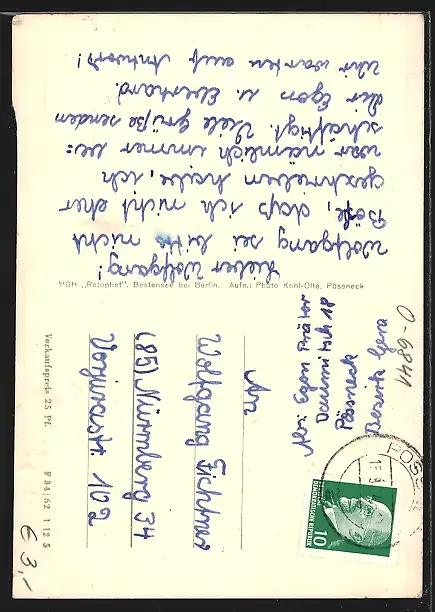 Lieber Wolfgang!
Wolfgang sei bitte nicht
Böße, daß ich nicht eher
geschrieben habe, ich
war nämlich immer be=
schäftigt. Viele Grüße senden
Dir Egon u. Eberhard.
Wir warten auf Antwort!
PGH „Rotophot", Bestensee bei Berlin. Aufn.: Photo Kohl-Otte, Pössneck
Verkaufspreis 25 Pf.
F 84/62 1 12 5
Abs: Egon
18
Pössneck
Bezirk Gera
O-6841
An
Wolfgang
(85) Nürnberg 34
102
PÖSS
DEMOKRATISCHE REPUBLIK
10
€ 3,-